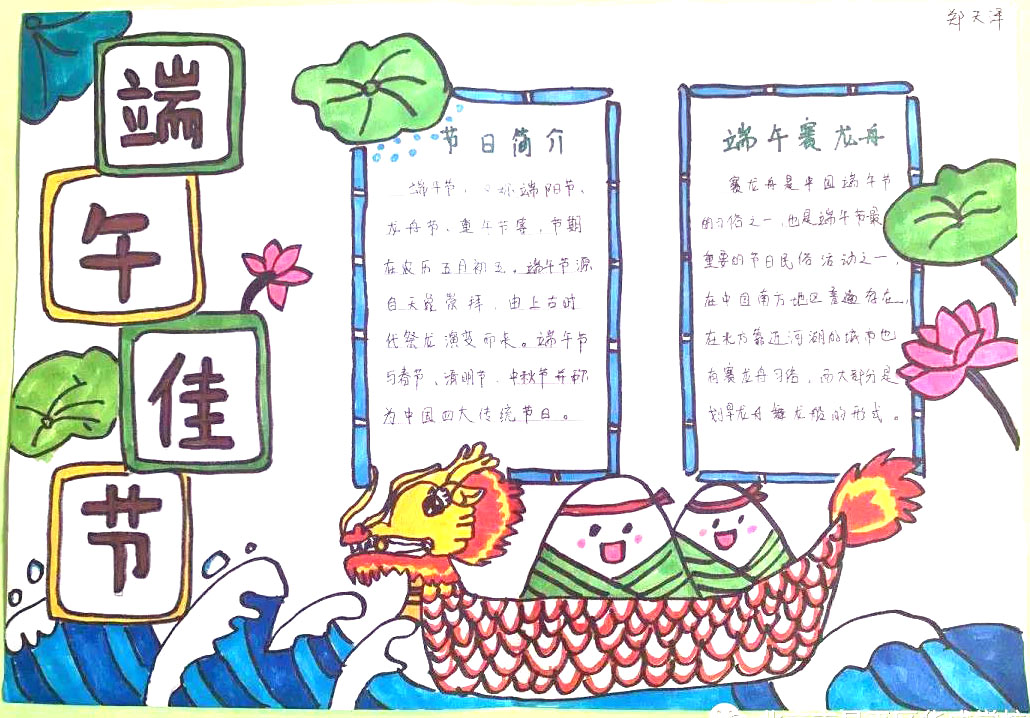 郑天泽
端
午
佳
节
节日简介
端午节、又称端阳节、
龙舟节、重午节等,节期
在农历五月初五。端午节源
自天象崇拜,由上古时
代祭龙演变而来。端午节
与春节、清明节、中秋节并称
为中国四大传统节日。
端午赛龙舟
赛龙舟是中国端午节
的习俗之一,也是端午节最
重要的节日民俗活动之一,
在中国南方地区普遍存在,
在北方靠近河湖的城市也
有赛龙舟习俗,而大部分是
划旱龙舟舞龙船的形式。